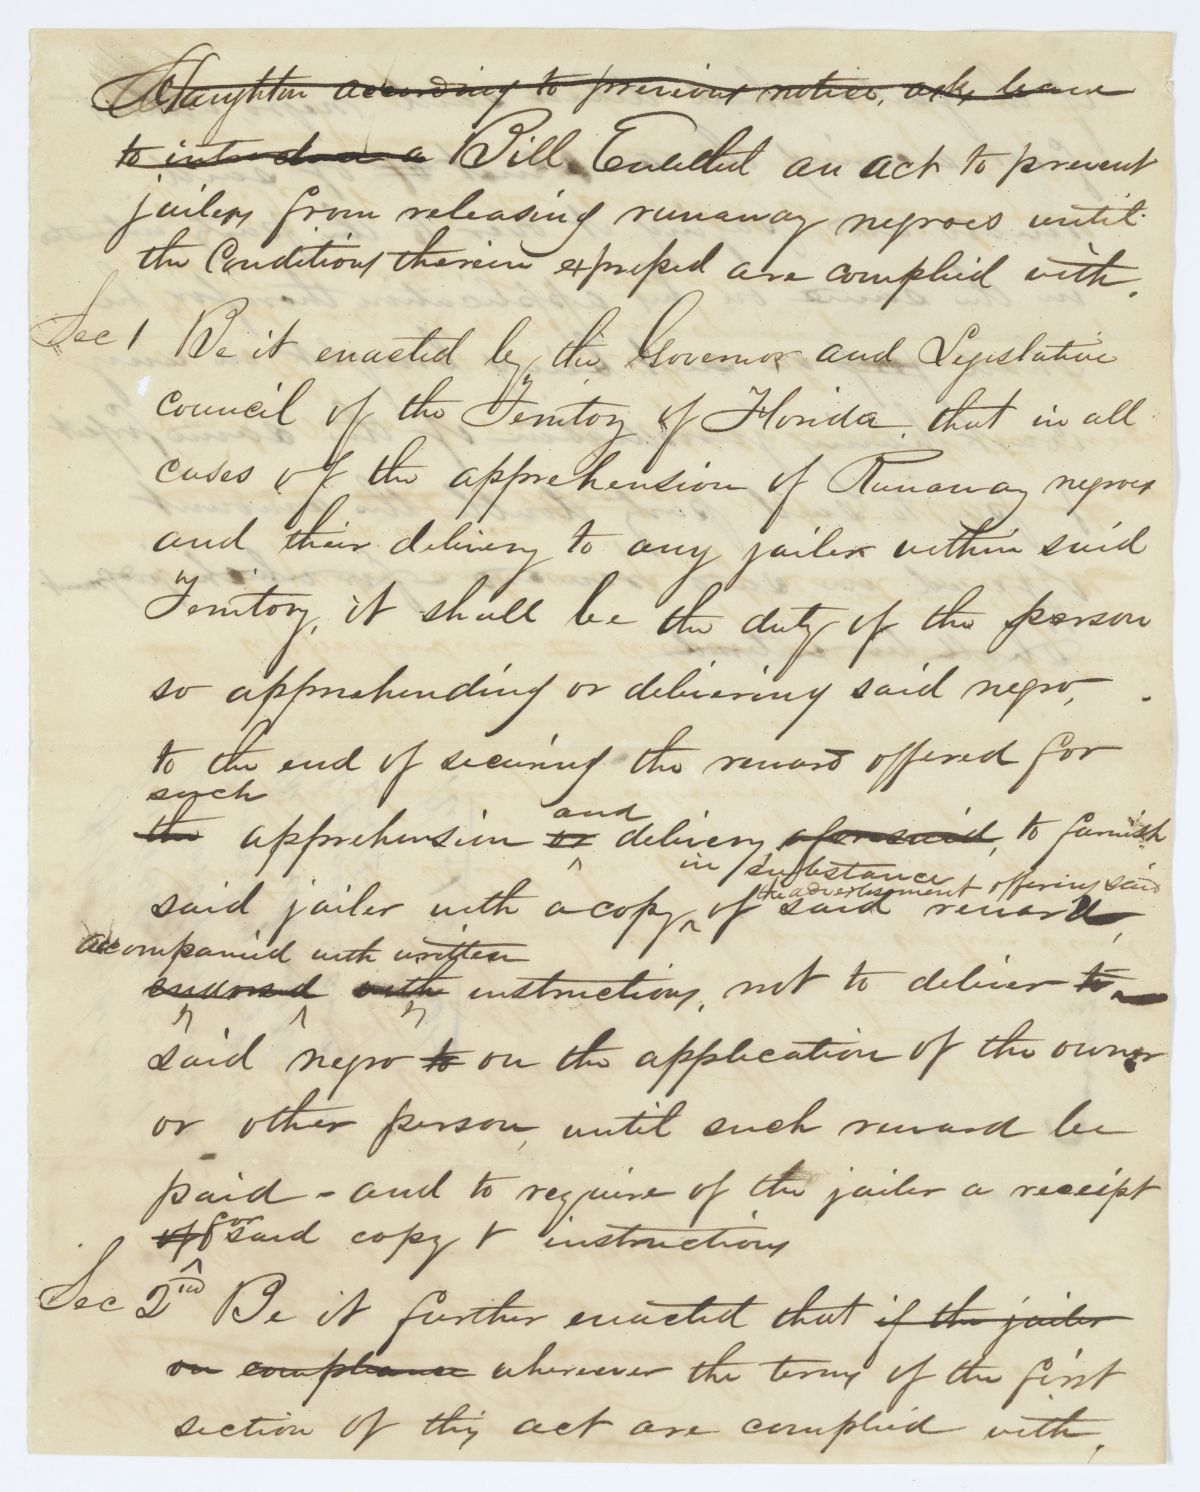 Haughton according to previous notice, asks leave
to introduce a Bill Entitled an act to prevent
jailers from releasing runaway negroes until
the Conditions therein expressed are complied with.
Sec 1 Be it enacted by the Governor and Legislative
council of the Territory of Florida, that in all
cases of the apprehension of Runaway negroes
and their delivery to any jailer within said
Territory, it shall be the duty of the person
so apprehending or delivering said negro,
to the end of securing the reward offered for
such
the apprehension or delivery aforesaid, to furnish
and
in substance
the advertisement offering said
said jailer with a copy of said reward,
accompanied with written
endorsed with instructions, not to deliver to
said negro to on the application of the owner
or other person, until such reward be
paid - and to require of the jailer a receipt
of for said copy & instructions
Sec 2nd Be it further enacted that if the jailer
on compliance wherever the terms of the first
section of this act are complied with,